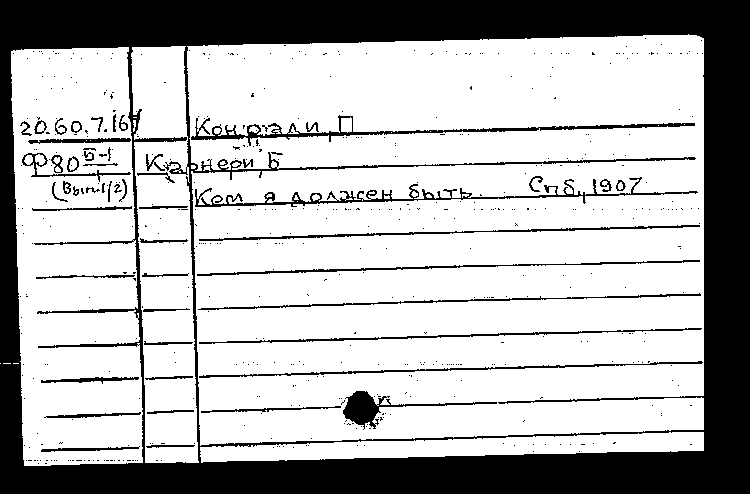 20.60.7.167 Конради, П
Ф80 Б-1/1 Карнери, Б
(Вып.1/2) Кем я должен быть. Спб., 1907